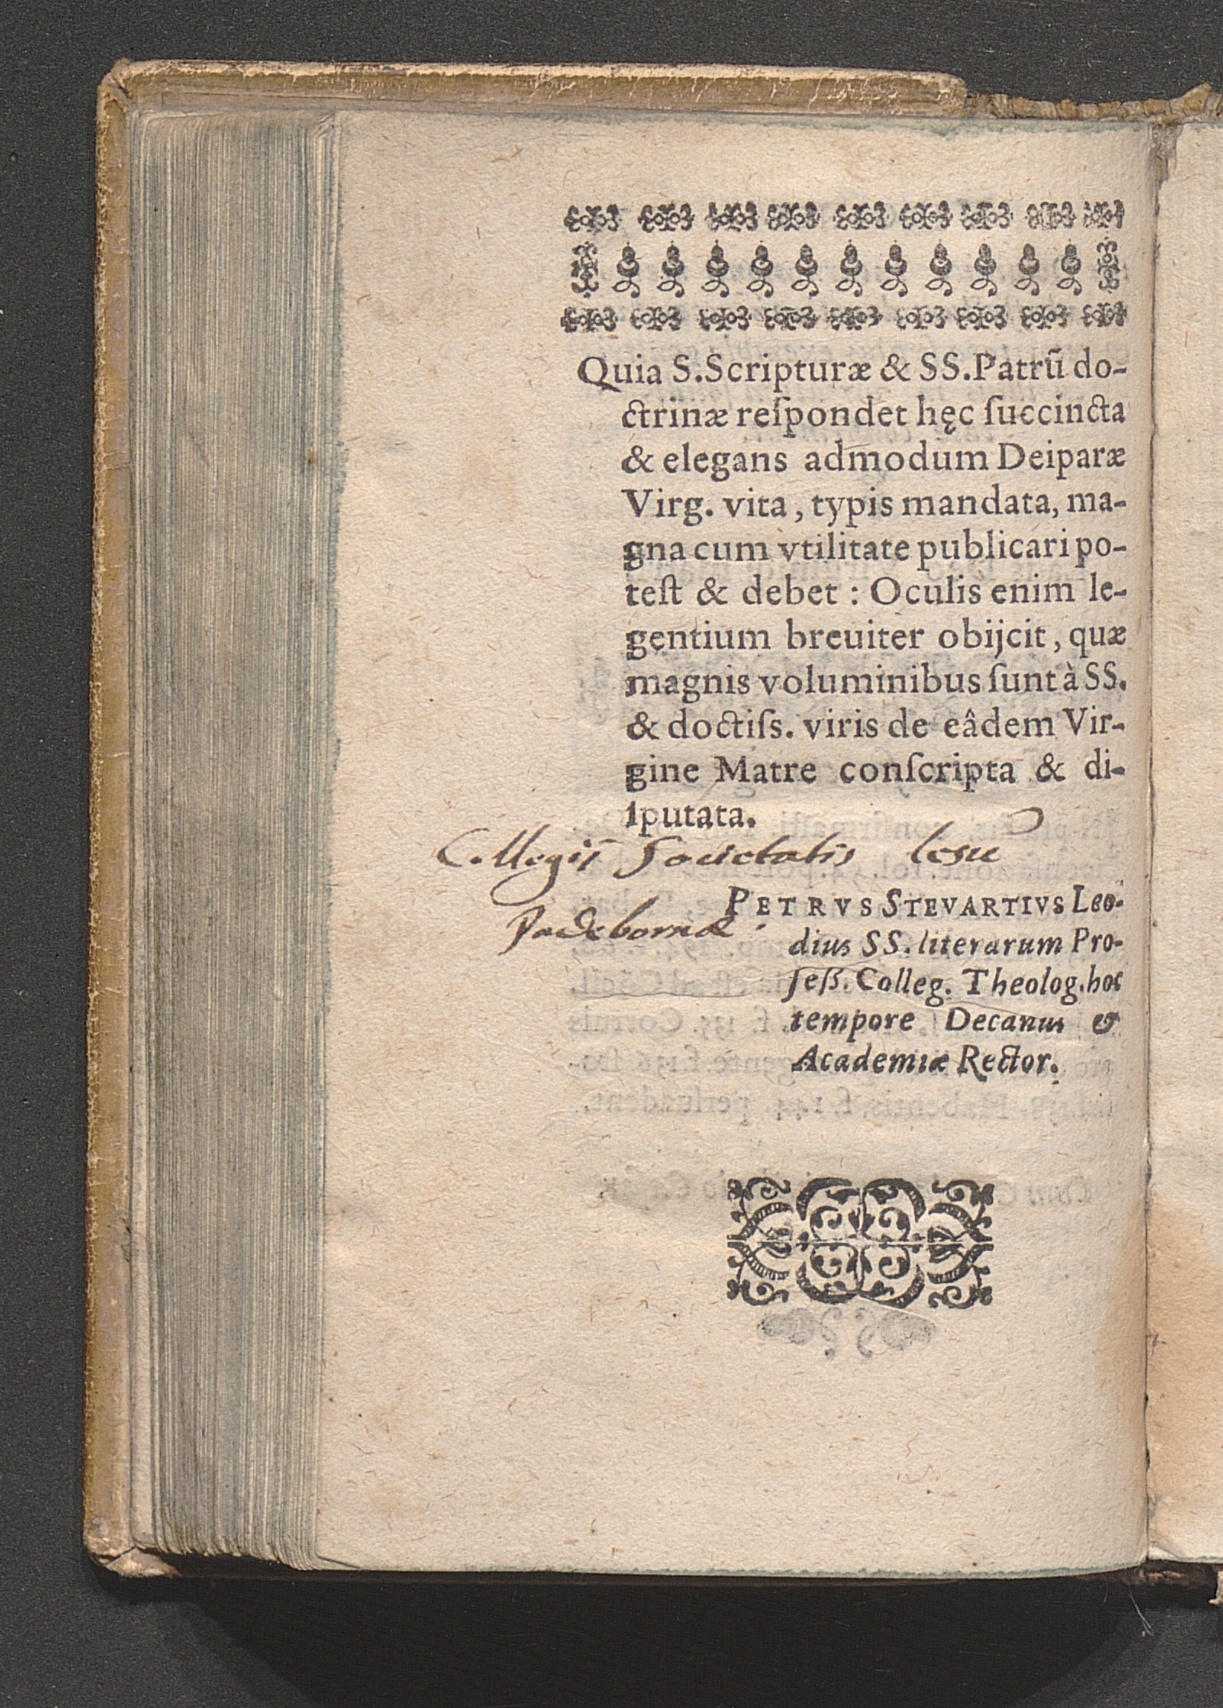 Quia S. Scripturæ & SS. Patrũ do-
ctrinæ reſpondet hęc ſuccincta
& elegans admodum Deiparæ
Virg. vita, typis mandata, ma-
gna cum vtilitate publicari po-
teſt & debet: Oculis enim le-
gentium breuiter obijcit, quæ
magnis voluminibus ſunt à SS.
& doctiſs. viris de eâdem Vir-
gine Matre conſcripta & di-
ſputata.
Collegij Societatis Iesu
Padebornæ
PETRVS STEVARTIVS Leo-
dius SS. literarum Pro-
feſß. Colleg. Theolog. hoc
tempore Decanus &
Academiæ Rector.